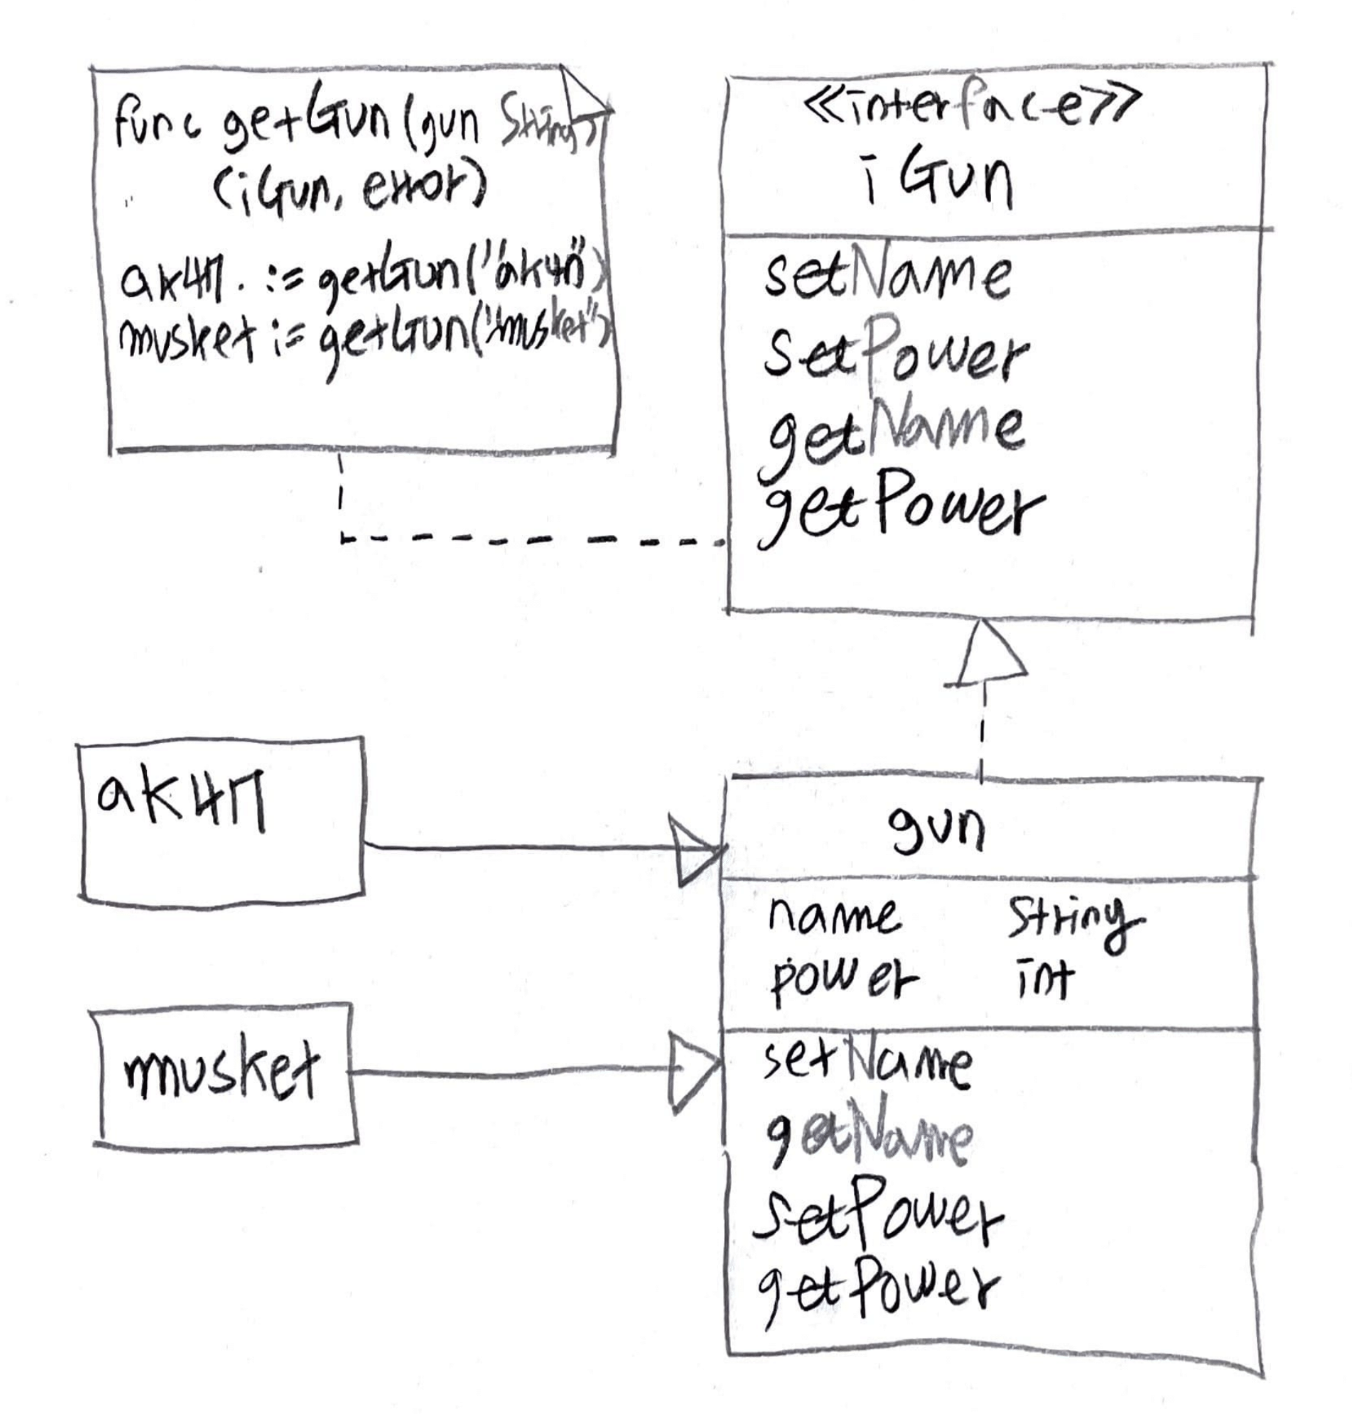 func getGun(gun String)
(iGun, error)
ak47 := getGun("ak47")
musket := getGun("musket")
<<interface>>
iGun
setName
setPower
getName
getPower
ak47
musket
gun
name String
power int
setName
getName
setPower
getPower